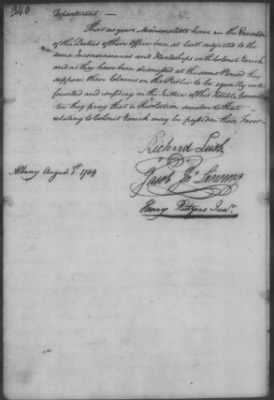 340
Department —
That as your Memorialists have in the Execution
of the Duties of their Offices been at least subjected to the
same Inconveniences and Hardships as Colonel Varick
and as they have been deranged at the same Period they
suppose their Claims on the Public to be equally well
founded and confiding in the Justice of this Honble Committee
they pray that a Resolution similar to that
relating to Colonel Varick may be passed in their Favor
Richrd Lush
Albany August 1st 1784
Jacob Jno Lansing
Henry Rutgers Junr.